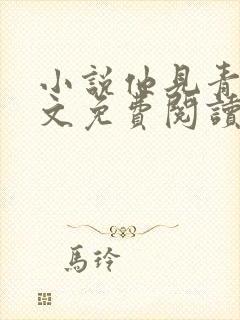 小說仙見青
文免費閱讀
馬玲